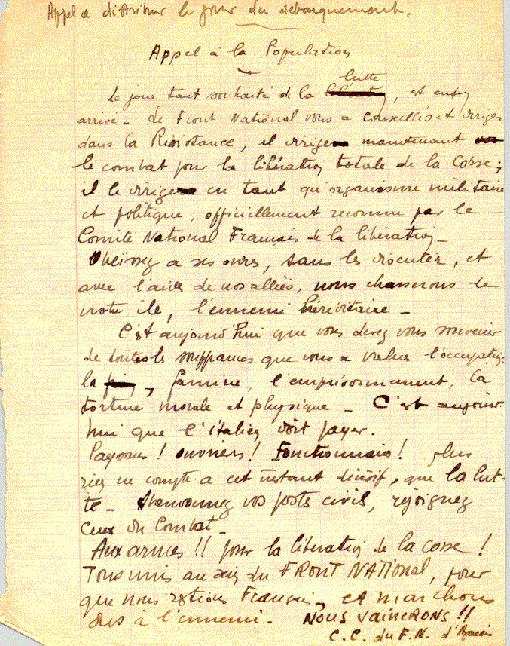 Appel a distribuer le jour du debarquement.
Appel à la Population
lutte
Le jour tant souhaité de la , est enfin
arrivé - Le Front National vous a conseillés et dirigés
dans la Résistance, il dirige maintenant
le combat pour la libération totale de la Corse ;
il le dirige en tant qu'organisme militaire
et politique, officiellement reconnu par le
Comité National Français de la libération -
Obeissez a ses ordres, sans les discuter, et
avec l'aide de nos alliés, nous chasserons de
notre ile, l'ennemi héréditaire -
C'est aujourd'hui que vous devez vous souvenir
de toutes les souffrances que vous a values l'occupation
la , famine, l'emprisonnement, la
torture morale et physique - C'est aujour
hui que l'italien doit payer.
Paysans ! ouvriers ! Fonctionnaires ! plus
rien ne compte a cet instant décisif, que la lut-
te - Abandonnez vos postes civils, rejoignez
ceux du Combat -
Aux armes !! pour la libération de la Corse !
Tous unis au sein du FRONT NATIONAL, pour
que nous restions Français, et marchons
dus a l'ennemi - NOUS VAINCRONS !!
C.C. du F.N. d'Ajaccio